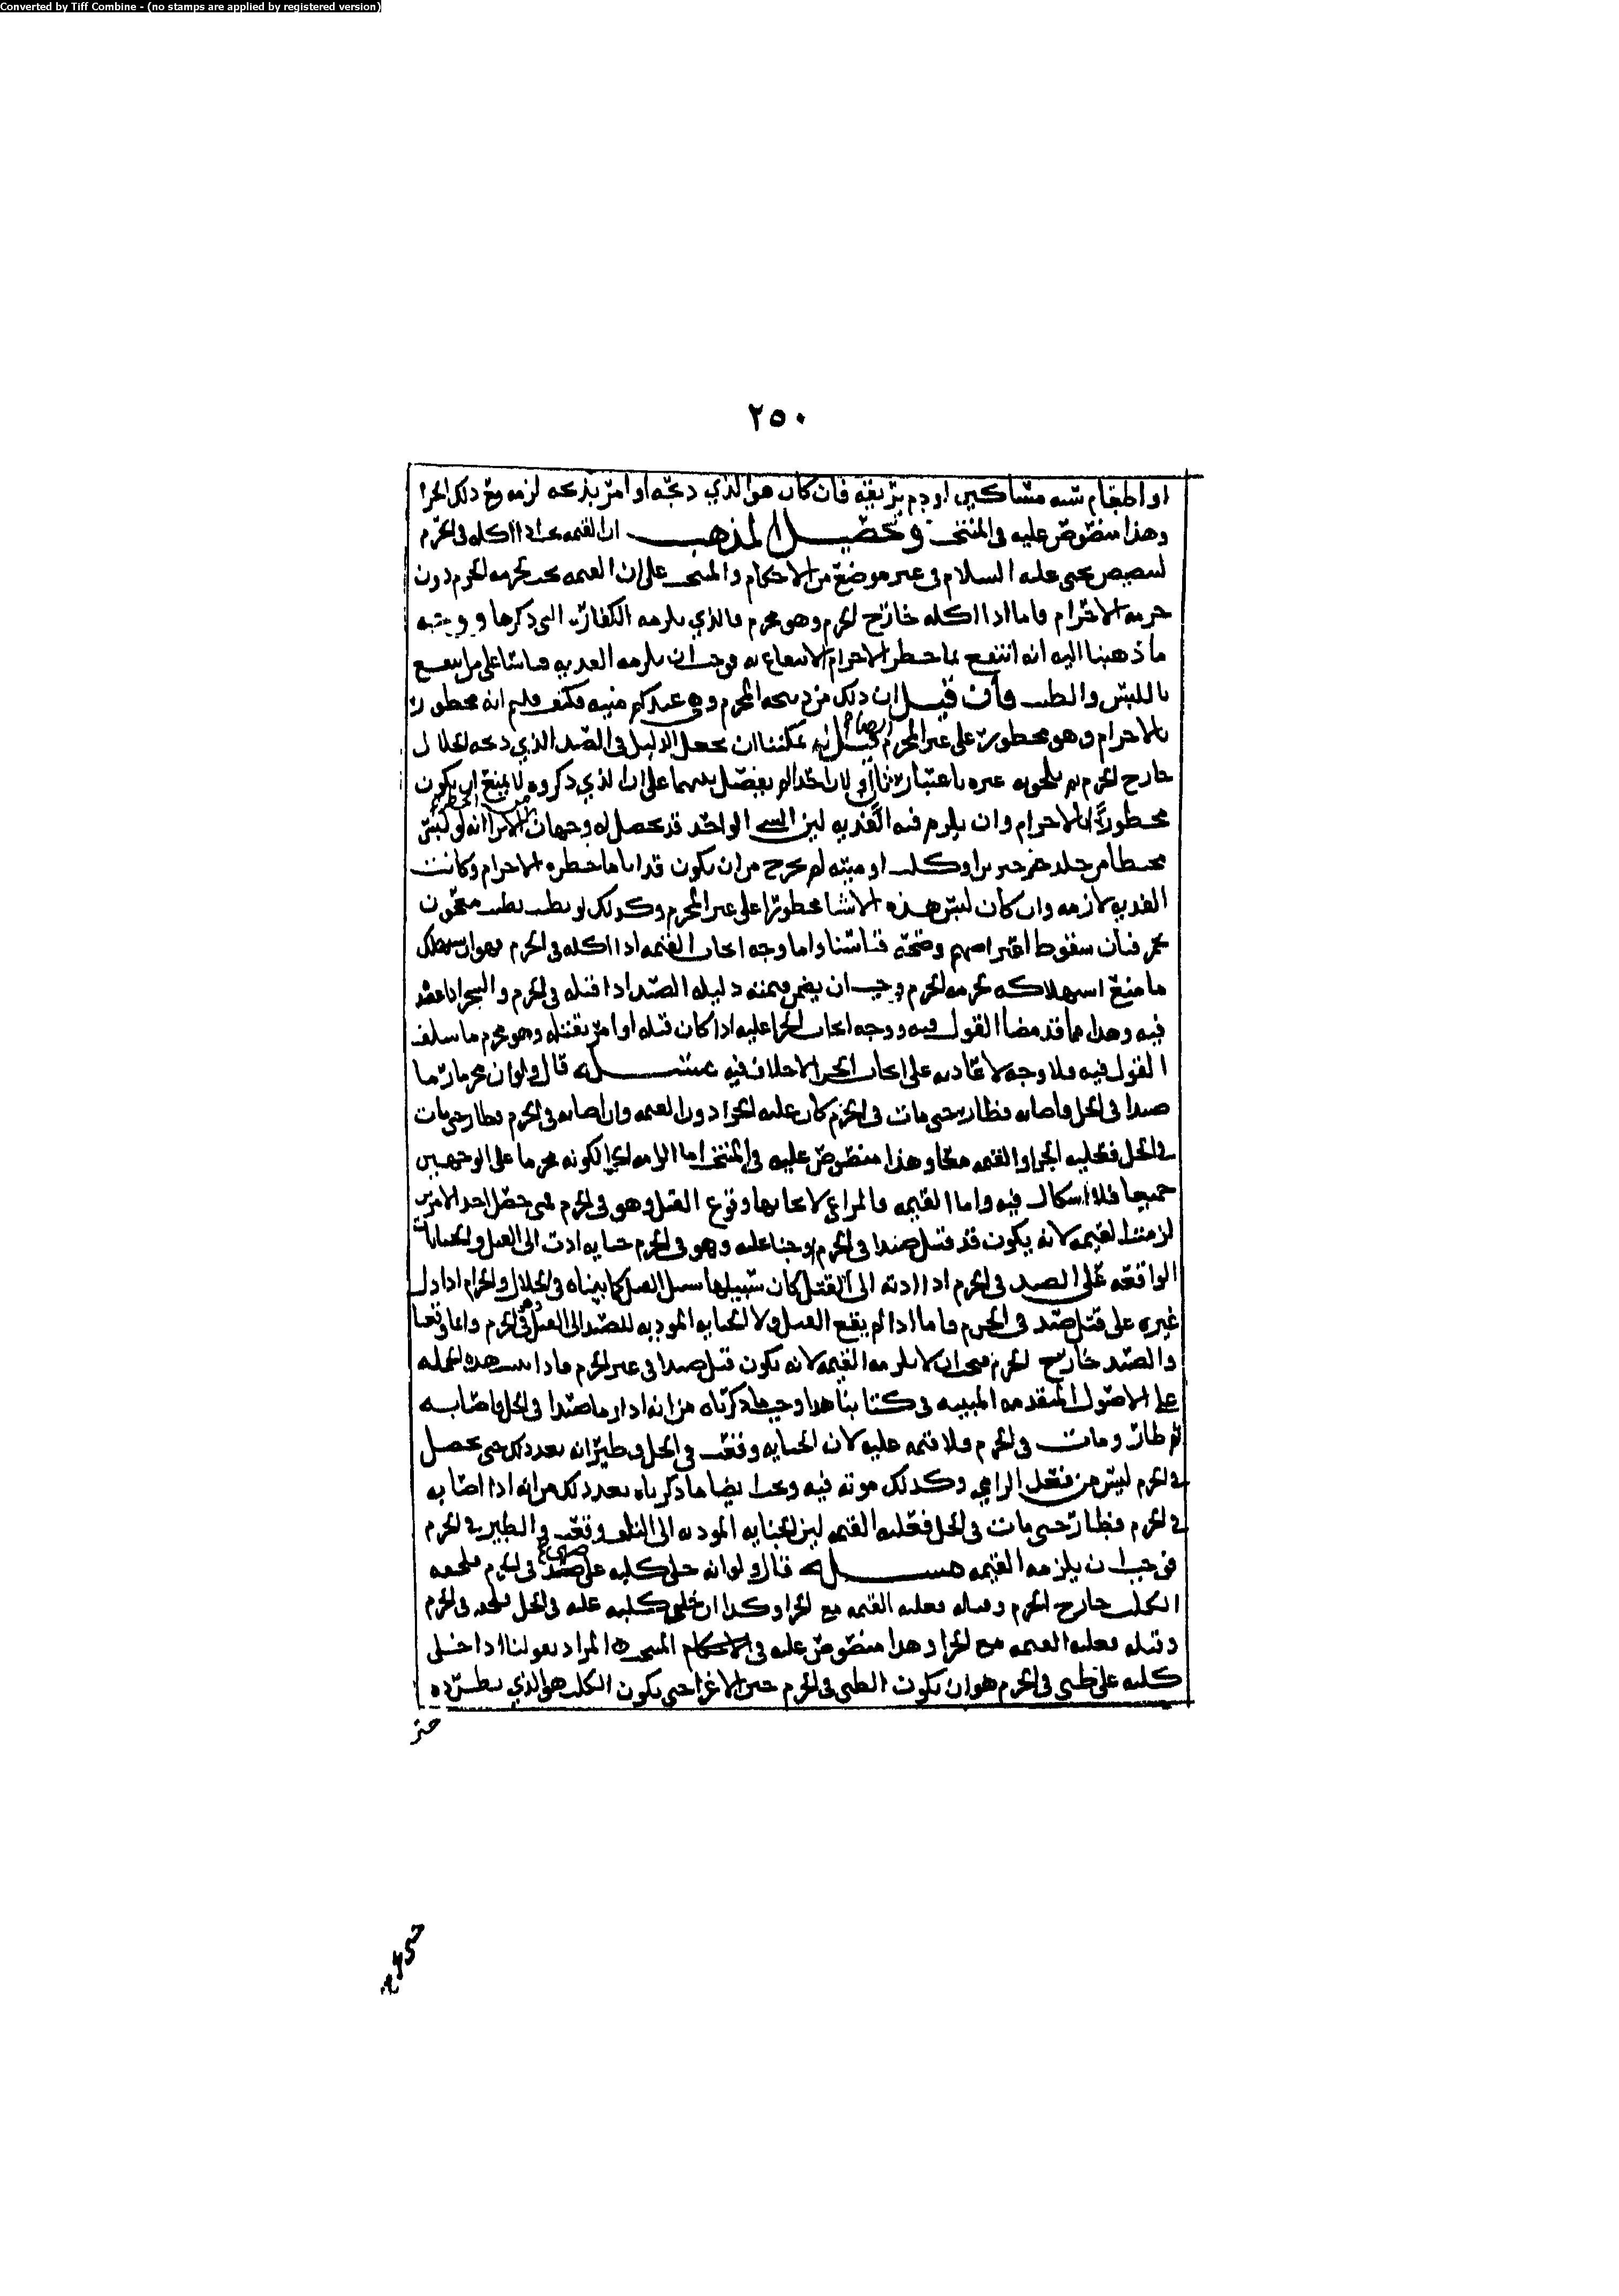 Converted by Tiff Combine - (no stamps are applied by registered version)
٢٥٠
او اطعام سته مساكين او دم يريقه فان كان هو الذي ذبحه او امر بذبحه لزمه مع ذلك الجزا
وهذا منصوص عليه في المنتخب وتحصيل المذهب ان القيمه تجب اذا اكله في الحرم
لتنصيص يحيى عليه السلام في غير موضع من الاحكام والمنتخب على ان القيمه تجب لحرمه الحرم دون
حرمه الاحرام فاما اذا اكله خارج الحرم وهو محرم فالذي يلزمه الكفاره التي ذكرها ووجه
ما ذهبنا اليه انه انتفع بما حظر الاحرام الانتفاع به فوجب ان يلزمه الفديه قياسا على من ينتفع
باللبس والطيب فان قيل ان ذلك من ذبيحه المحرم وهي عندكم ميته فكيف قلتم انه محظور
بالاحرام وهو محظور على غير المحرم ايضا قيل له يمكننا ان نجعل الدليل في الصيد الذي ذبحه الحلال
خارج الحرم ثم نلحق به غيره باعتبار ثان او لان احدا لم يفصل بينهما على ان الذي ذكروه لا يمنع ان يكون
محظورا بالاحرام وان يلزم فيه الفديه لان الشي الواحد قد يحصل له وجهان من الحظر الا ترا انه لو لبس
مخيطا من جلد خنزير او كلب او ميته لم يخرج من ان يكون قد اتا ما حظره الاحرام وكانت
الفديه لازمه وان كان لبس هذه الاشيا محظورا على غير المحرم وكذلك لو تطيب بطيب معجون
بخمر فبان سقوط اعتراضهم وصحه قياسنا واما وجه ايجاب القيمه اذا اكله في الحرم فهو انه استهلك
ما منع استهلاكه لحرمه الحرم وجب ان يضمن قيمته دليله الصيد اذا قتله في الحرم والشجر اذا عضد
فيه وهذا مما قد مضا القول فيه ووجه ايجاب الجزا عليه اذا كان قتله او امر بقتله وهو محرم ما سلف
القول فيه فلا وجه لاعادته على ايجاب الجزا لا خلاف فيه مسئله قال ولو ان محرما رما
صيدا في الحل فاصابه فطار حتى مات في الحرم كان عليه الجزا دون القيمه وان اصابه في الحرم فطار حتى مات
في الحل فعليه الجزا والقيمه معا وهذا منصوص عليه في المنتخب اما الزامه الجزا لكونه محرما على الوجهين
جميعا فلا اشكال فيه واما القيمه فالمراعى لايجابها وقوع القتل وهو في الحرم فمتى حصل احد الامرين
لزمته القيمه لانه يكون قد قتل صيدا في الحرم او جنا عليه وهو في الحرم جنايه ادت الى القتل والجنايات
الواقعه على الصيد في الحرم اذا ادته الى القتل كان سبيلها سبيل القتل كما بيناه في الحلال والحرام اذا دل
غيره على قتل صيد في الحرم فاما اذا لم يقع القتل ولا الجنايه المؤديه للصيد الى القتل في الحرم وانما وقعا
والصيد خارج الحرم فيجب ان لا يلزمه القيمه لانه يكون قتل صيدا في غير الحرم فاذا ثبت هذه الجمله
على الاصول المتقدمه المبينه في كتابنا هذا وجب ما ذكرناه من انه اذا رما صيدا في الحل فاصابه
ثم طار ومات في الحرم فلا قيمه عليه لان الجنايه وقعت في الحل وطيرانه بعد ذلك حتى يحصل
في الحرم ليس من فعل الرامي وكذلك موته فيه ويجب ايضا ما ذكرناه بعد ذلك من انه اذا اصابه
في الحرم فطار حتى مات في الحل فعليه القيمه لان الجنايه المؤديه الى التلف وقعت والطير في الحرم
فوجب ان يلزمه القيمه مسئله قال ولو انه خلى كلبه على صيد في الحرم فلحقه
الكلب خارج الحرم وقتله فعليه القيمه مع الجزا وكذا ان خلى كلبه عليه في الحل فلحقه في الحرم
وقتله فعليه القيمه مع الجزا وهذا منصوص عليه في المنتخب المراد بقولنا اذا خلى
كلبه على ظبي في الحرم هو ان يكون الظبي في الحرم حين الاغرا حتى يكون الكلب هو الذي يطرده
حتى